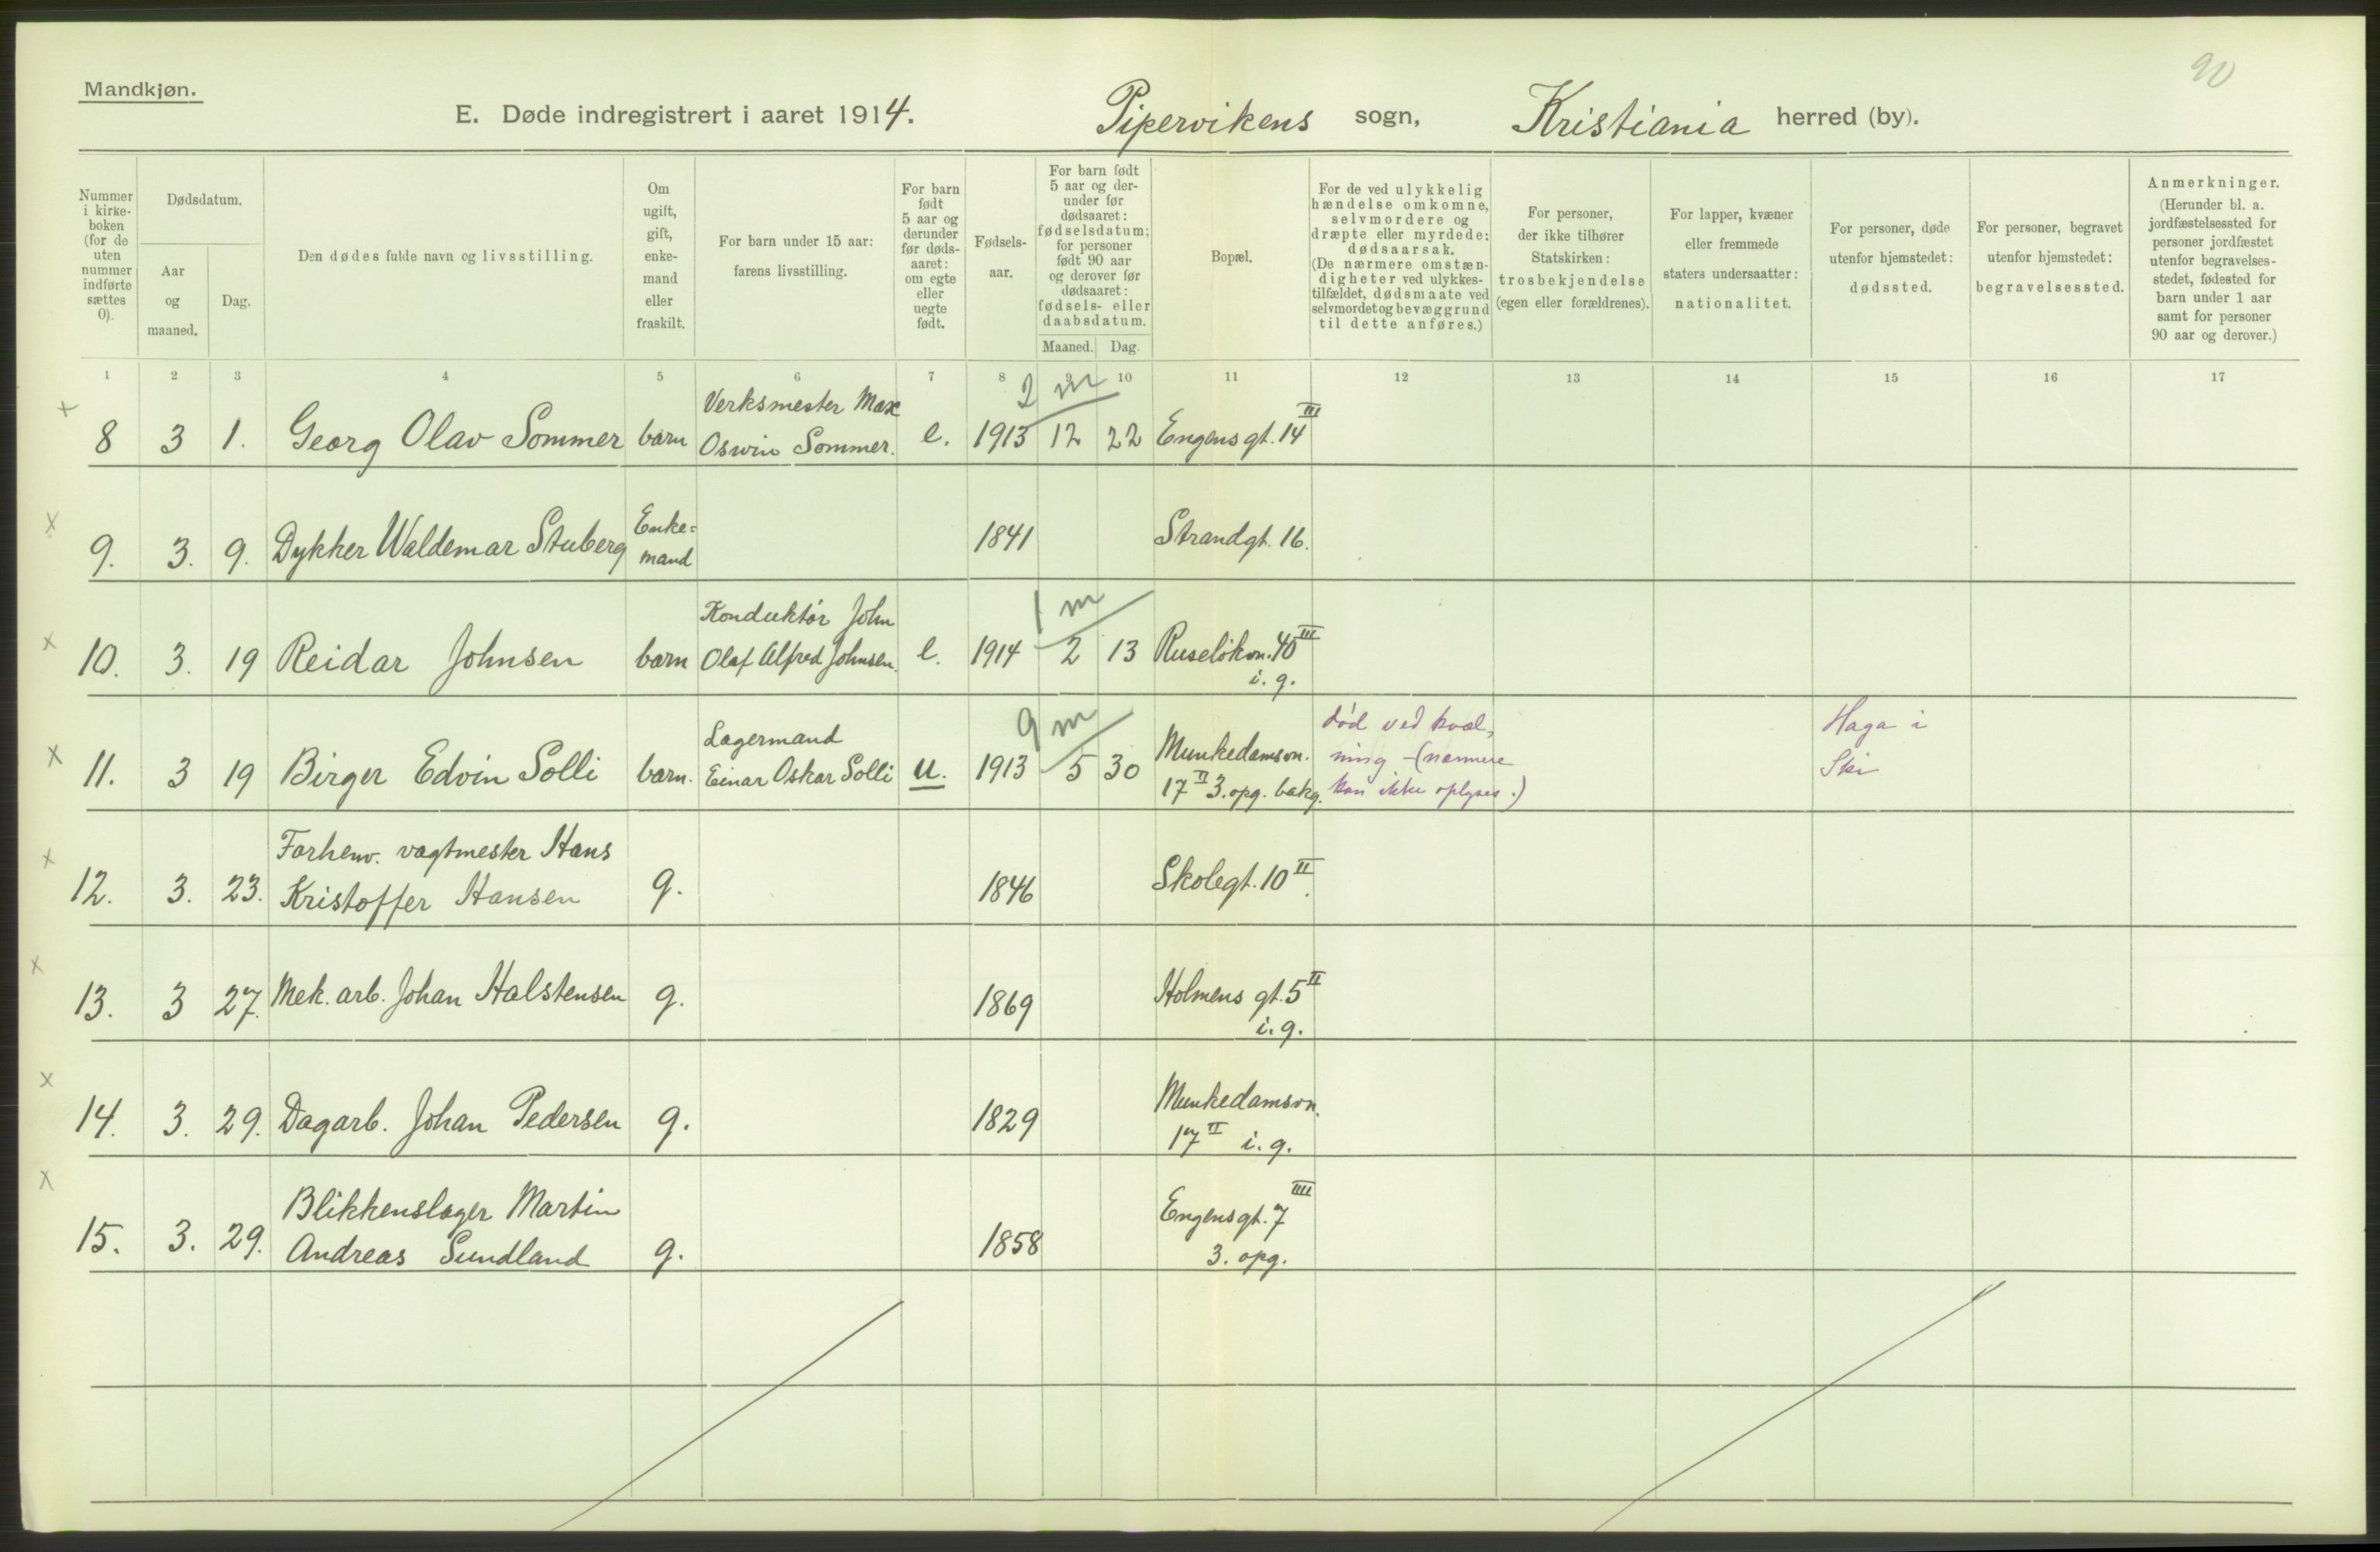 90
Mandkjøn.
E. Døde indregistrert i aaret 1914. Pipervikens sogn, Kristiania herred (by).
Nummer i kirke-boken (for de uten nummer indførte sættes 0).
Dødsdatum.
Aar og maaned.
Dag.
Den dødes fulde navn og livsstilling.
Om ugift, gift, enke-mand eller fraskilt.
For barn under 15 aar: farens livsstilling.
For barn født 5 aar og derunder før døds-aaret: om egte eller uegte født.
Fødsels-aar.
For barn født 5 aar og der-under før dødsaaret: fødselsdatum; for personer født 90 aar og derover før dødsaaret: fødsels- eller daabsdatum.
Maaned. Dag.
Bopæl.
For de ved ulykkelig hændelse omkomne, selvmordere og dræpte eller myrdede: dødsaarsak. (De nærmere omstæn-digheter ved ulykkes-tilfældet, dødsmaate ved selvmordet og bevæggrund til dette anføres.)
For personer, der ikke tilhører Statskirken: trosbekjendelse (egen eller forældrenes).
For lapper, kvæner eller fremmede staters undersaatter: nationalitet.
For personer, døde utenfor hjemstedet: dødssted.
For personer, begravet utenfor hjemstedet: begravelsessted.
Anmerkninger. (Herunder bl. a. jordfæstelsessted for personer jordfæstet utenfor begravelses-stedet, fødested for barn under 1 aar samt for personer 90 aar og derover.)
1 2 3 4 5 6 7 8 9 10 11 12 13 14 15 16 17
2 m
x 8 3 1. Georg Olav Sommer barn Verksmester Max Oswin Sommer. e. 1913 12 22 Engens gt. 14 III
x 9. 3. 9. Dykker Waldemar Stuberg Enke=mand 1841 Strandgt. 16.
1 m
x 10. 3. 19 Reidar Johnsen barn Konduktør John Olaf Alfred Johnsen. e. 1914 2 13 Ruseløkvn. 40 III i. g.
9 m
x 11. 3 19 Birger Edvin Solli barn. Lagermand Einar Oskar Solli u. 1913 5 30 Munkedamsvn. 17 II 3. opg. bakg. død ved kvæl,ning - (nærmere kan ikke oplyses.) Haga i Ski
x 12. 3. 23. Forhenv. vagtmester Hans Kristoffer Hansen g. 1846 Skolegt. 10 II.
x 13. 3 27. Mek. arb. Johan Halstensen g. 1869 Holmens gt. 5 II i. g.
x 14. 3. 29. Dagarb. Johan Pedersen g. 1829 Munkedamsvn. 17 II i. g.
x 15. 3. 29. Blikkenslager Martin Andreas Sundland g. 1858 Engens gt. 7 III 3. opg.